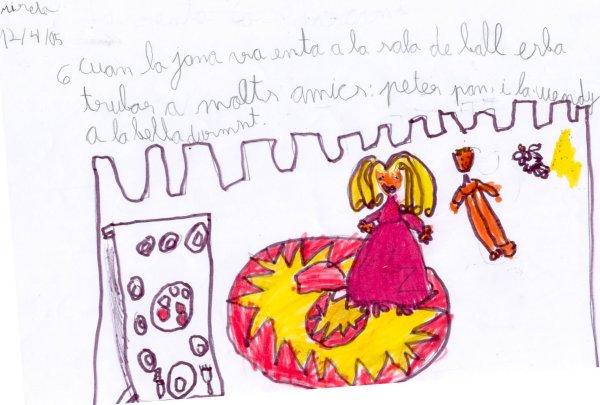 mireia
12/4/05
6 cuan la jana va enta a la sala de ball erba
trubar a molts amics: peter pan, i la wendy
a la bella durmnt.